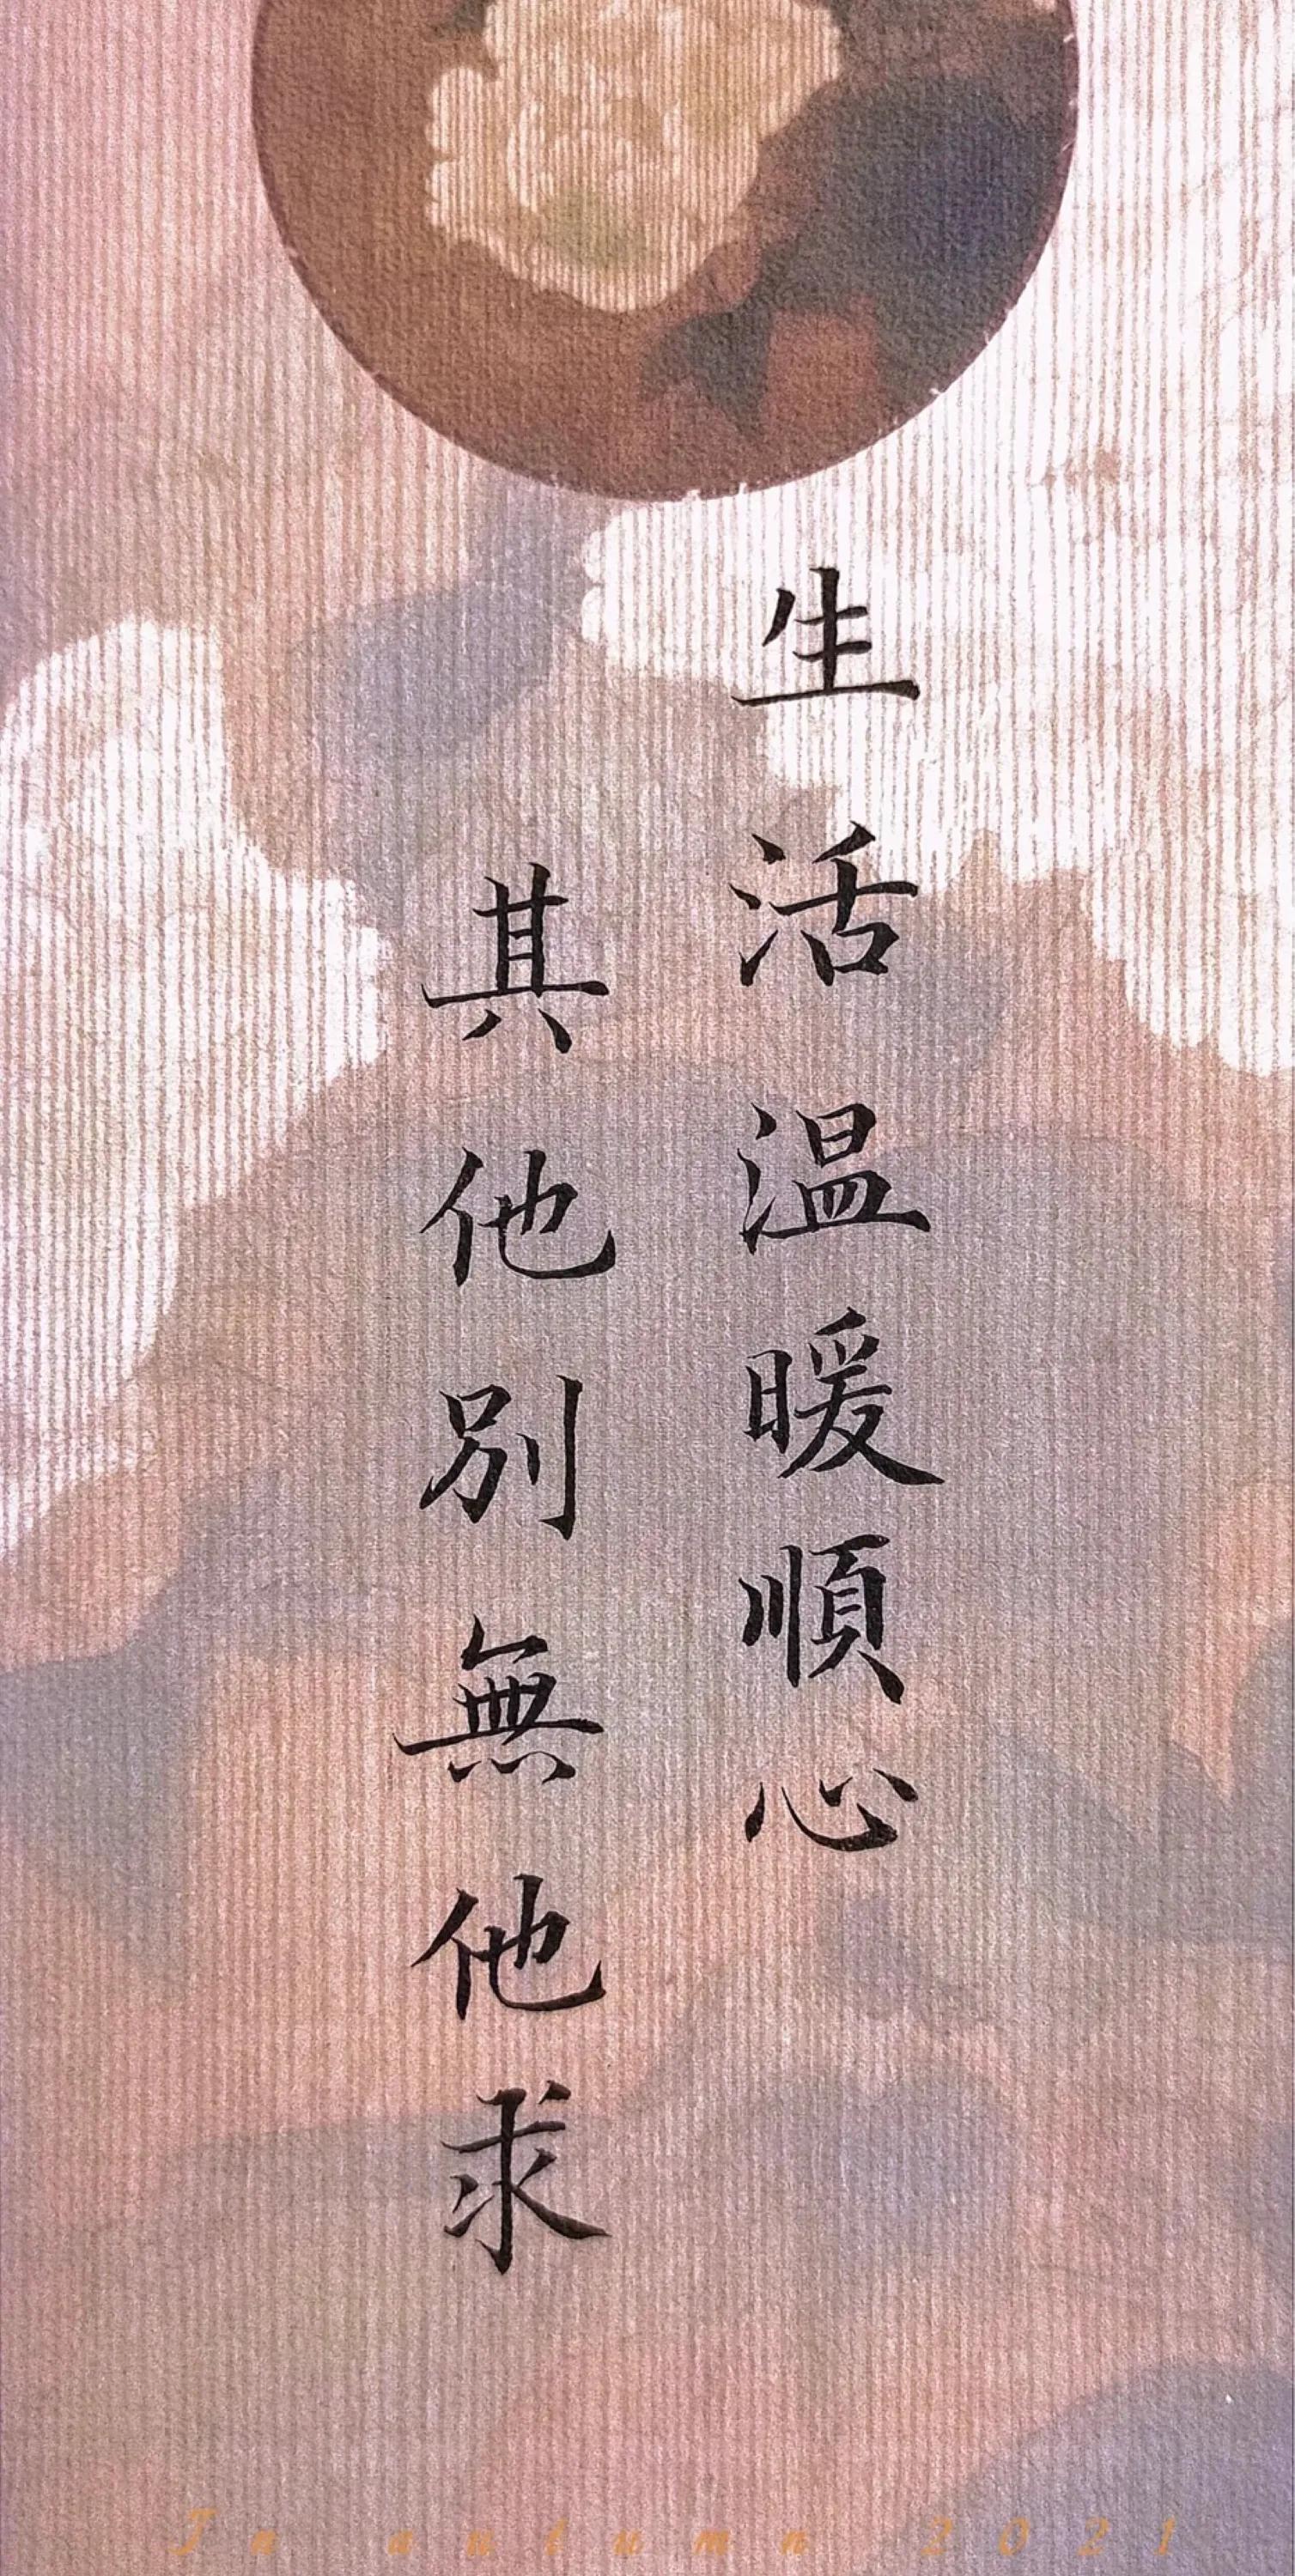 生活温暖順心
其他別無他求
In autumn 2021